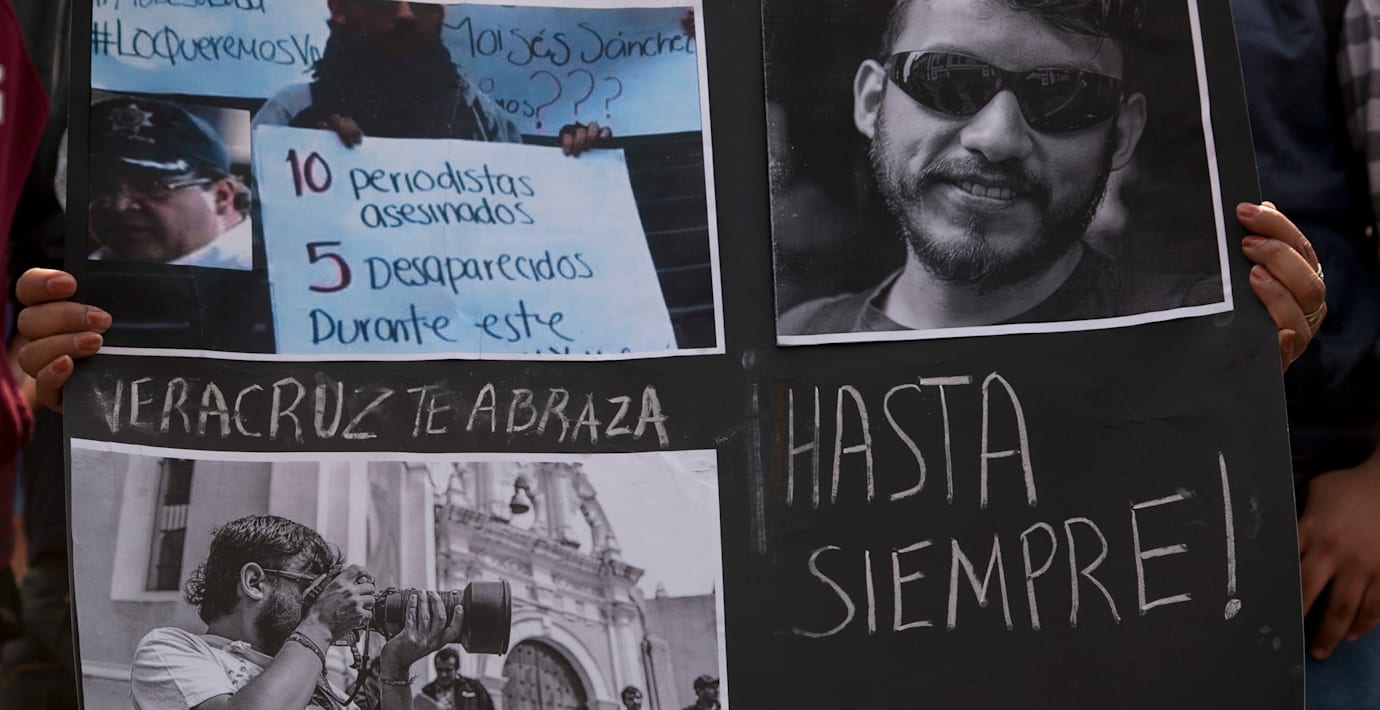 #LoQueremosV
Moisés Sánchez
???
10 periodistas
asesinados
5 Desaparecidos
Durante este
VERACRUZ TE ABRAZA
HASTA
SIEMPRE!